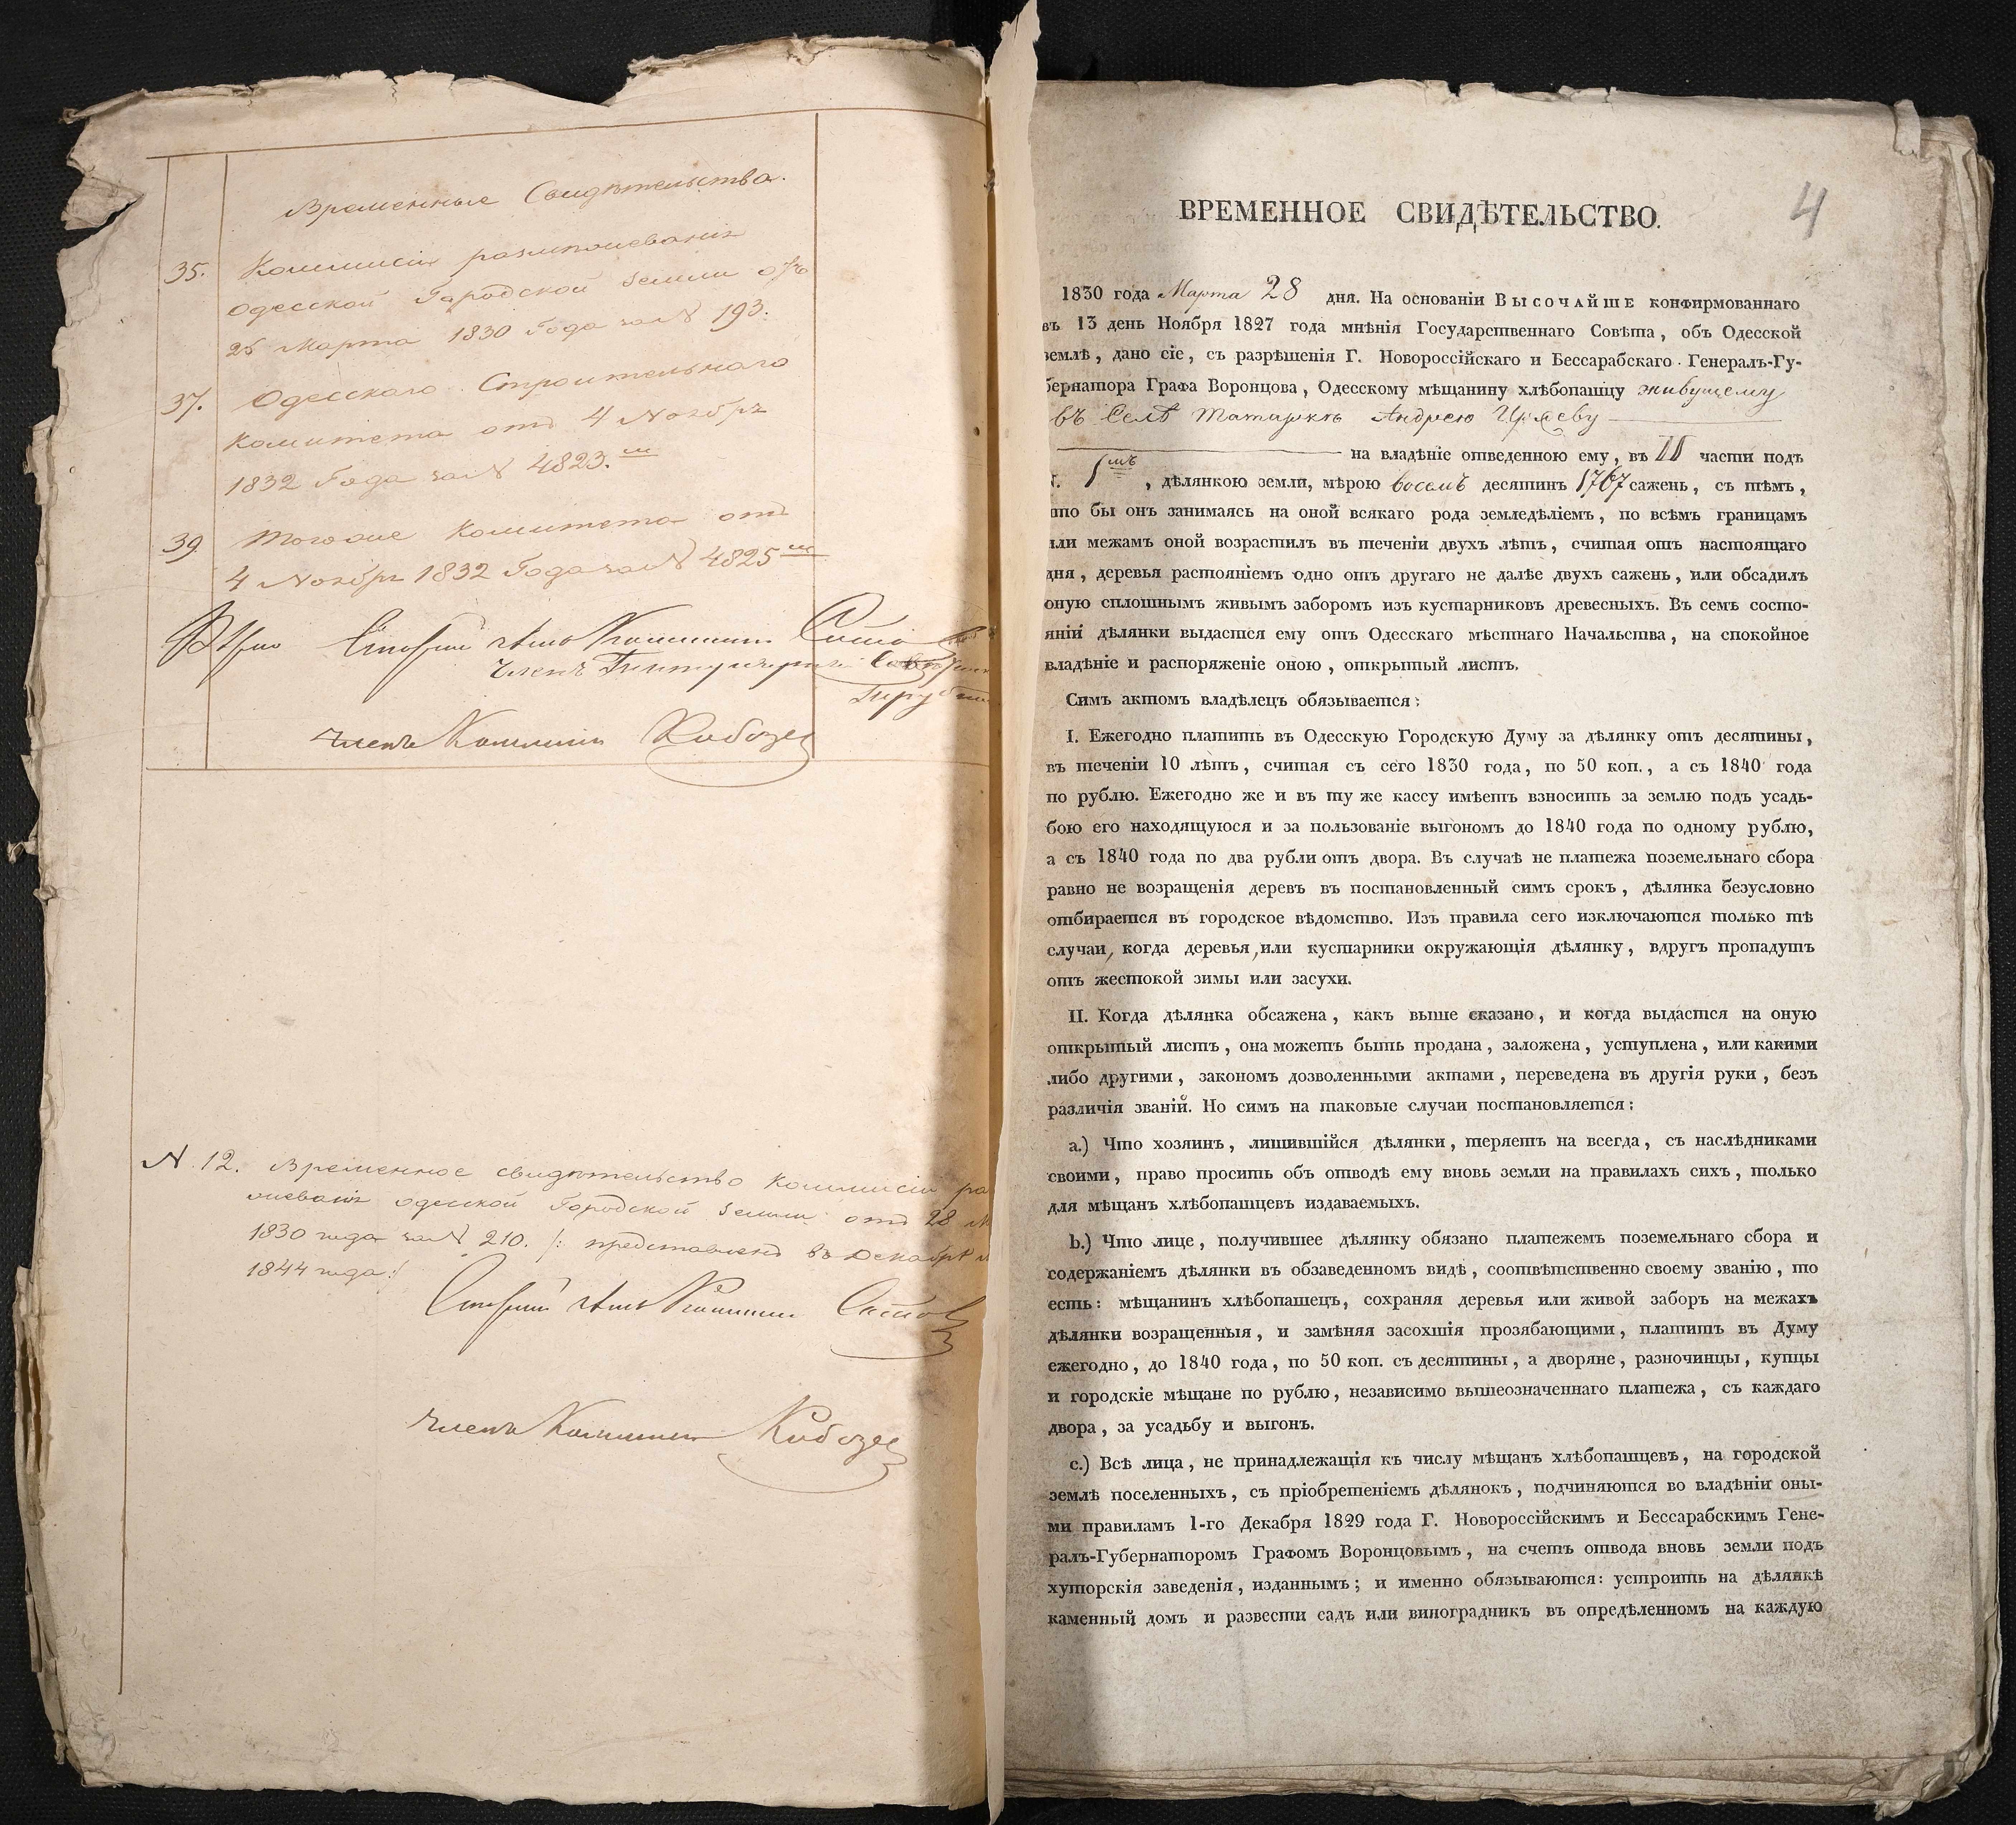 Временные Свидѣтельства.
35. Коммисіи размѣжеванія
Одесской Городской Земли отъ
26 Марта 1830 Года за N 193.
37. Одесскаго Строительнаго
Комитета отъ 4 Ноября
1832 Года за N 4823.
39. Тогоже Комитета отъ
4 Ноября 1832 Года за N 4825
Членъ Коммисіи
N. 12. Временное свидѣтельство Коммисіи
жеванія Одесской Городской Земли отъ 28
1830 года за N 210. /: представлено въ Декабрѣ
1844 года :/
Членъ Коммисіи
4
ВРЕМЕННОЕ СВИДѢТЕЛЬСТВО.
1830 года Марта 28 дня. На основаніи Высочайше конфирмованнаго
въ 13 день Ноября 1827 года мнѣнія Государственнаго Совѣта, объ Одесской
землѣ, дано сіе, съ разрѣшенія Г. Новороссійскаго и Бессарабскаго Генералъ-Гу-
бернатора Графа Воронцова, Одесскому мѣщанину хлѣбопашцу живущему
въ Селѣ Татаркѣ Андрею
на владѣніе отведенною ему, въ II части подъ
N. 1мъ, дѣлянкою земли, мѣрою восемь десятинъ 1767 сажень, съ тѣмъ,
что бы онъ занимаясь на оной всякаго рода земледѣліемъ, по всѣмъ границамъ
или межамъ оной возрастилъ въ теченіи двухъ лѣтъ, считая отъ настоящаго
дня, деревья растояніемъ одно отъ другаго не далѣе двухъ сажень, или обсадилъ
оную сплошнымъ живымъ заборомъ изъ кустарниковъ древесныхъ. Въ семъ состо-
яніи дѣлянки выдастся ему отъ Одесскаго мѣстнаго Начальства, на спокойное
владѣніе и распоряженіе оною, открытый листъ.
Симъ актомъ владѣлецъ обязывается:
I. Ежегодно платить въ Одесскую Городскую Думу за дѣлянку отъ десятины,
въ теченіи 10 лѣтъ, считая съ сего 1830 года, по 50 коп., а съ 1840 года
по рублю. Ежегодно же и въ ту же кассу имѣетъ взносить за землю подъ усадь-
бою его находящуюся и за пользованіе выгономъ до 1840 года по одному рублю,
а съ 1840 года по два рубли отъ двора. Въ случаѣ не платежа поземельнаго сбора
равно не возращенія деревъ въ постановленный симъ срокъ, дѣлянка безусловно
отбирается въ городское вѣдомство. Изъ правила сего изключаются только тѣ
случаи, когда деревья, или кустарники окружающія дѣлянку, вдругъ пропадутъ
отъ жестокой зимы или засухи.
II. Когда дѣлянка обсажена, какъ выше сказано, и когда выдастся на оную
открытый листъ, она можетъ быть продана, заложена, уступлена, или какими
либо другими, закономъ дозволенными актами, переведена въ другія руки, безъ
различія званій. Но симъ на таковые случаи постановляется:
a.) Что хозяинъ, лишившійся дѣлянки, теряетъ на всегда, съ наслѣдниками
своими, право просить объ отводѣ ему вновь земли на правилахъ сихъ, только
для мѣщанъ хлѣбопашцевъ издаваемыхъ.
b.) Что лице, получившее дѣлянку обязано платежемъ поземельнаго сбора и
содержаніемъ дѣлянки въ обзаведенномъ видѣ, соотвѣтственно своему званію, то
есть: мѣщанинъ хлѣбопашецъ, сохраняя деревья или живой заборъ на межахъ
дѣлянки возращенныя, и замѣняя засохшія прозябающими, платитъ въ Думу
ежегодно, до 1840 года, по 50 коп. съ десятины, а дворяне, разночинцы, купцы
и городскіе мѣщане по рублю, независимо вышеозначеннаго платежа, съ каждаго
двора, за усадьбу и выгонъ.
c.) Всѣ лица, не принадлежащія къ числу мѣщанъ хлѣбопашцевъ, на городской
землѣ поселенныхъ, съ пріобретеніемъ дѣлянокъ, подчиняются во владѣніи оны-
ми правиламъ 1-го Декабря 1829 года Г. Новороссійскимъ и Бессарабскимъ Гене-
ралъ-Губернаторомъ Графомъ Воронцовымъ, на счетъ отвода вновь земли подъ
хуторскія заведенія, изданнымъ; и именно обязываются: устроить на дѣлянкѣ
каменный домъ и развести садъ или виноградникъ въ опредѣленномъ на каждую